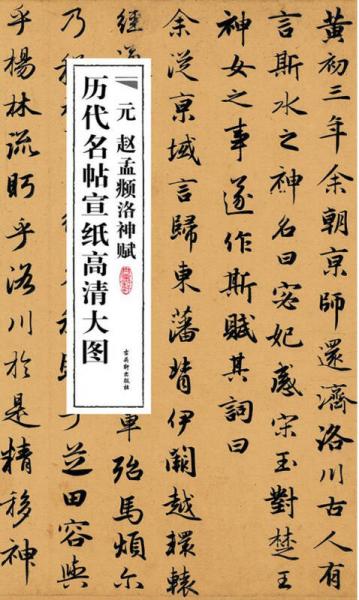 黄初三年余朝京師還濟洛川古人有
言斯水之神名曰宓妃感宋玉對楚王
神女之事遂作斯賦其詞曰
余從京域言歸東藩背伊闕越轘轅
經
車殆馬煩尔
乃
芝田容與
乎楊林流眄乎洛川於是精移神
元 赵孟𫖯洛神赋
历代名帖宣纸高清大图
古吴轩出版社